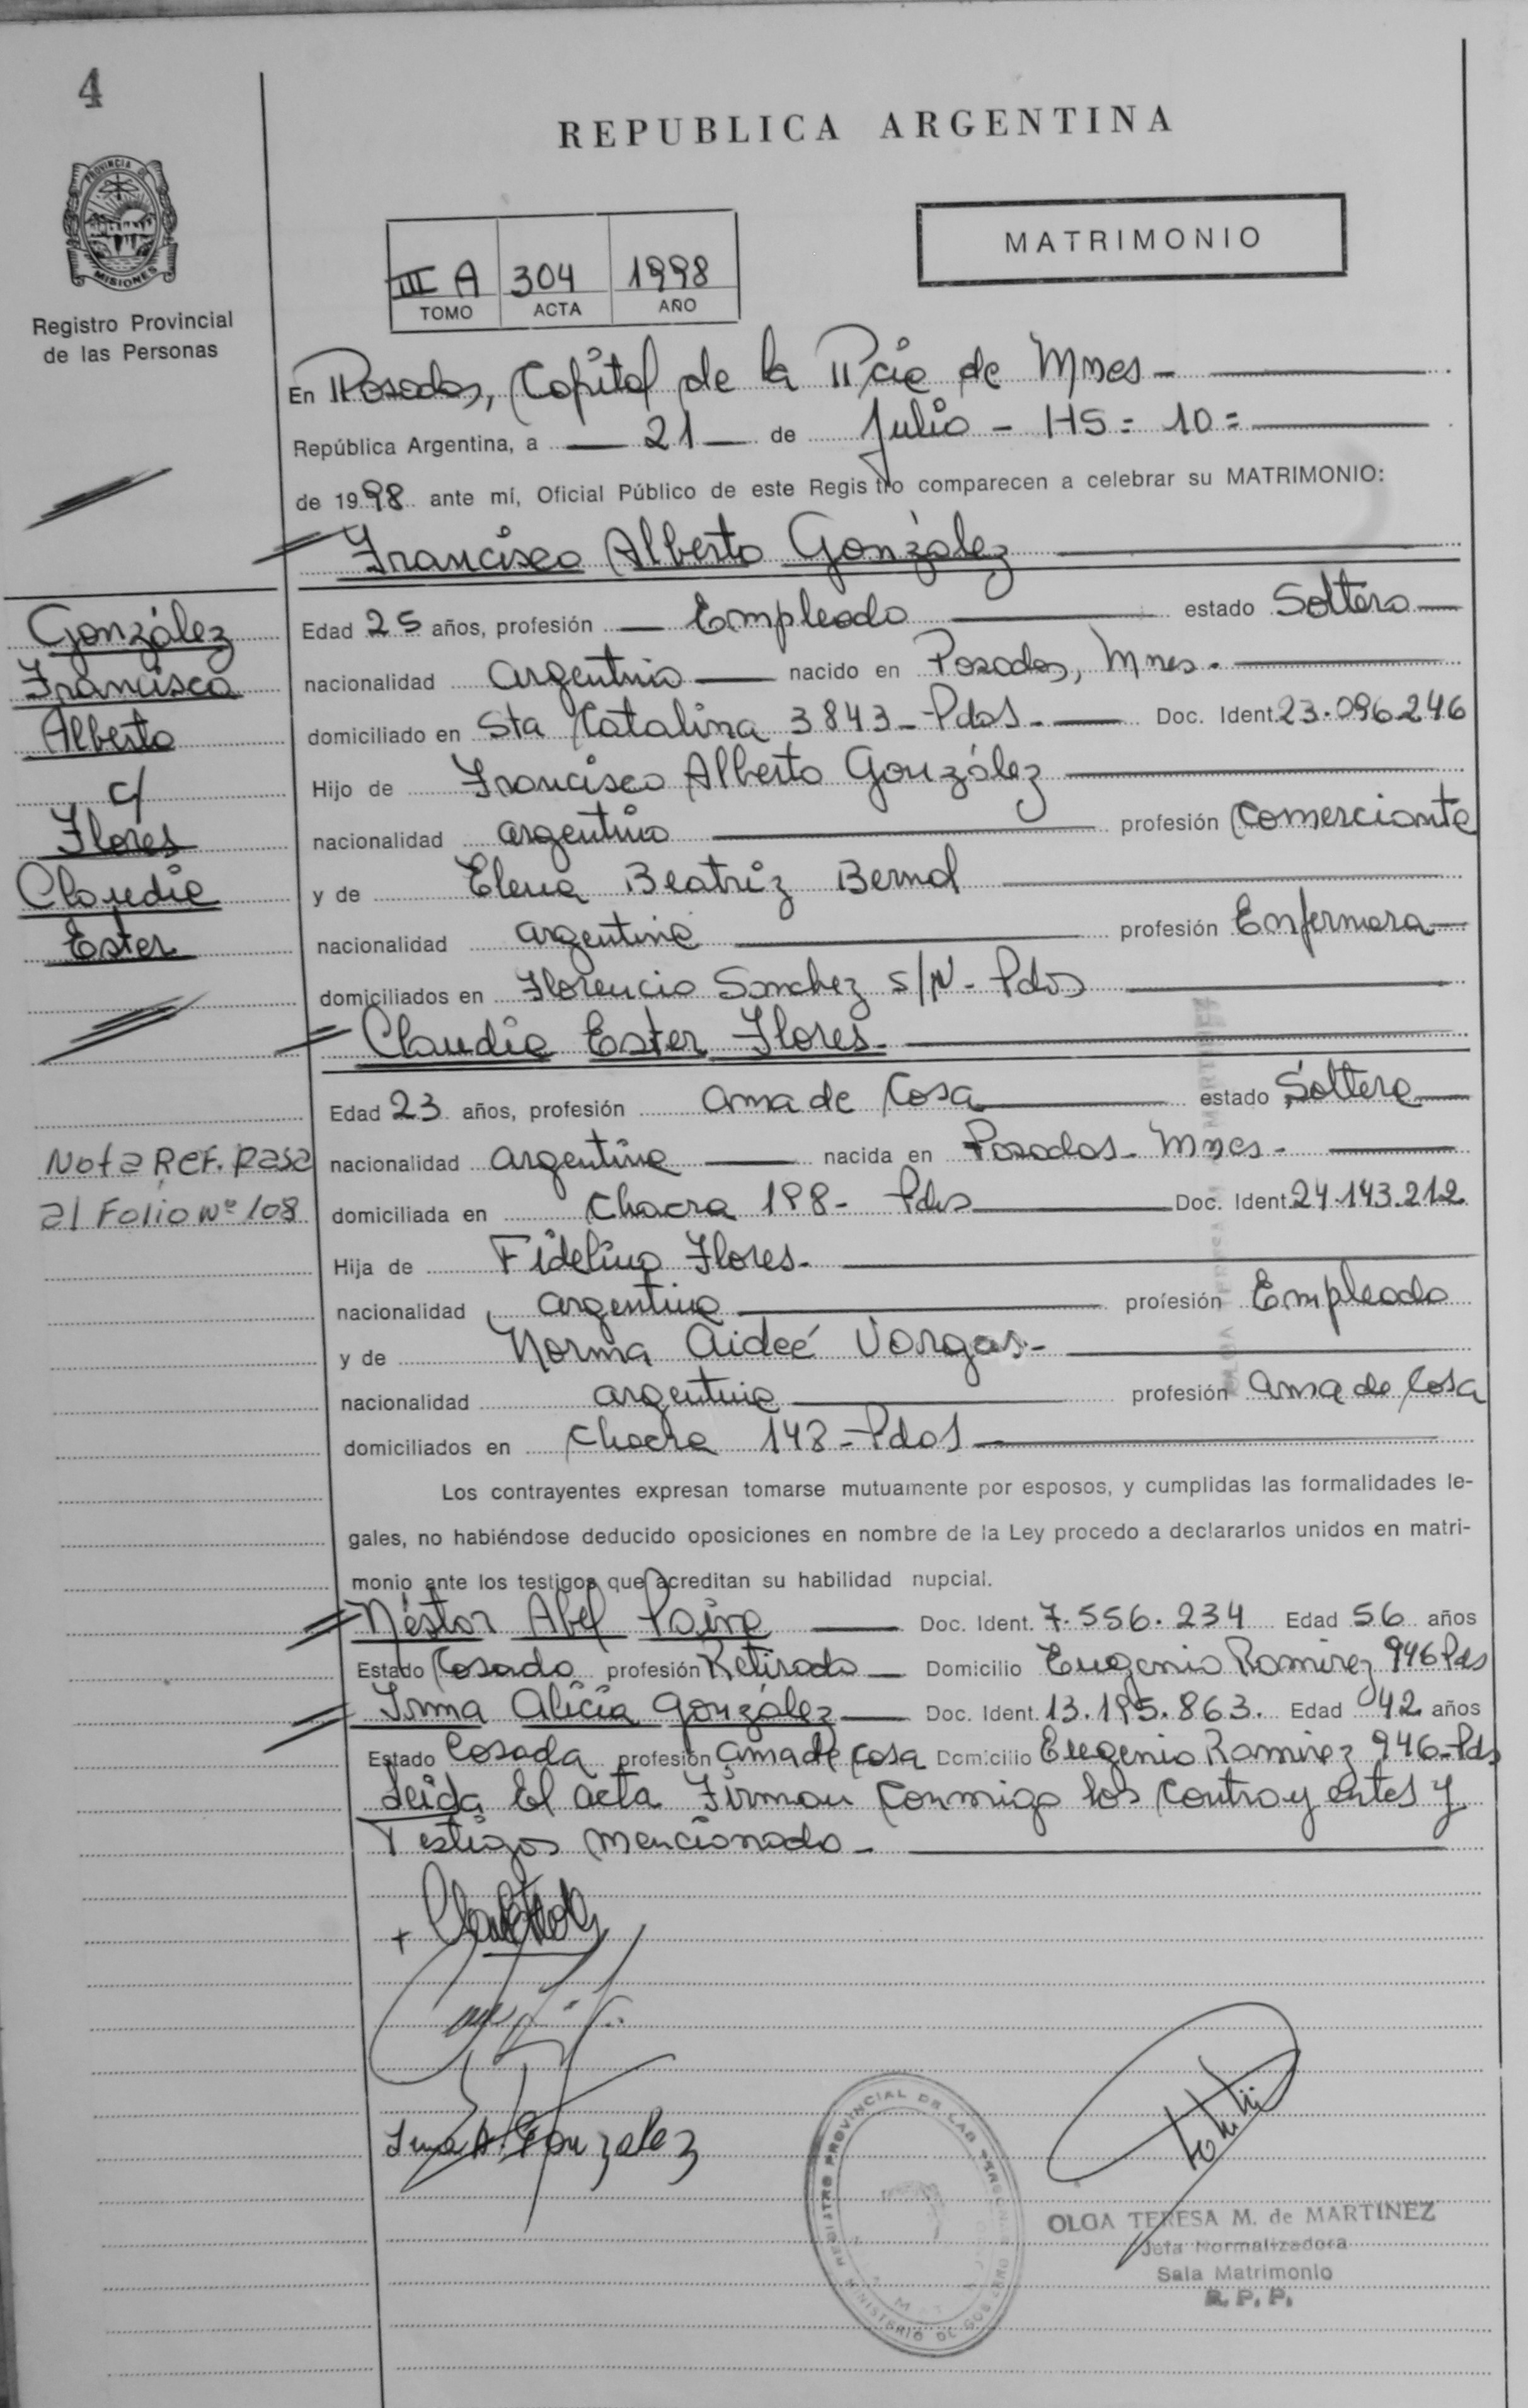 4
REPUBLICA ARGENTINA
PROVINCIA DE
MISIONES
Registro Provincial
de las Personas
MATRIMONIO
III A 304 1998
TOMO ACTA AÑO
En Posadas, Capital de la Pcia de Mnes -
República Argentina, a 21 de Julio - HS = 10 =
de 1998 ante mí, Oficial Público de este Registro comparecen a celebrar su MATRIMONIO:
Francisco Alberto González
González
Francisco
Alberto
c/
Flores
Claudia
Ester
Edad 25 años, profesión Empleado estado Soltero
nacionalidad argentino nacido en Posadas, Mnes.
domiciliado en Sta Catalina 3843 - Pdas - Doc. Ident. 23.096.246
Hijo de Francisco Alberto González
nacionalidad argentino profesión Comerciante
y de Elena Beatriz Bernal
nacionalidad argentina profesión Enfermera
domiciliados en Florencio Sanchez s/N - Pdas
Claudia Ester Flores -
Edad 23 años, profesión ama de Casa estado Soltera
Nota Ref. pasa
al Folio Nº 108
nacionalidad argentina nacida en Posadas - Mnes -
domiciliada en Chacra 198 - Pdas Doc. Ident. 24.143.212
Hija de Fidelino Flores -
nacionalidad argentino profesión Empleado
y de Norma Aideé Vargas -
nacionalidad argentina profesión ama de Casa
domiciliados en Chacra 148 - Pdas
Los contrayentes expresan tomarse mutuamente por esposos, y cumplidas las formalidades le-
gales, no habiéndose deducido oposiciones en nombre de la Ley procedo a declararlos unidos en matri-
monio ante los testigos que acreditan su habilidad nupcial.
Néstor Abel Paiva Doc. Ident. 7.556.234 Edad 56 años
Estado Casado profesión Retirado Domicilio Eugenio Ramirez 946 Pdas
Irma Alicia González Doc. Ident. 13.195.863. Edad 42 años
Estado Casada profesión ama de casa Domicilio Eugenio Ramirez 946 - Pds
Leida El acta Firman Conmigo los Contrayentes y
Testigos mencionado -
Irma A. Gonzalez
REGISTRO PROVINCIAL DE LAS PERSONAS
MINISTERIO DE GOBIERNO
OLGA TERESA M. de MARTINEZ
Jefa Normalizadora
Sala Matrimonio
R. P. P.